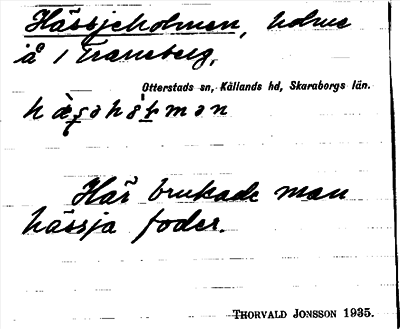 Hässjeholmen, holme
i å i Traneberg,
Otterstads sn, Källands hd, Skaraborgs län.
Här brukade man
hässja foder.
THORVALD JONSSON 1935.